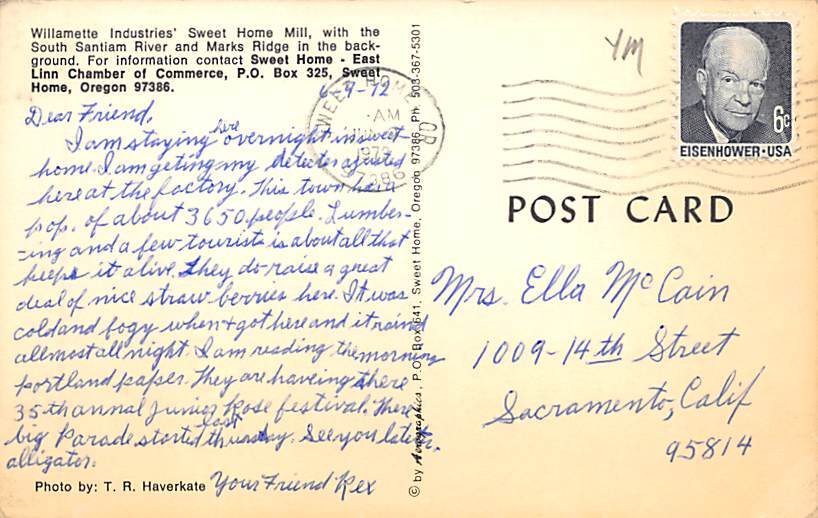 Willamette Industries' Sweet Home Mill, with the
South Santiam River and Marks Ridge in the back-
ground. For information contact Sweet Home - East
Linn Chamber of Commerce, P.O. Box 325, Sweet
Home, Oregon 97386.
6-9-72
Dear Friend,
I am staying here overnight in sweet
home. I am geting my detecter ajusted
here at the factory. This town has a
pop. of about 3650 people. Lumber-
ing and a few tourists is about all that
keeps it alive. They do raise a great
deal of nice straw berries here. It was
cold and fogy when I got here and it raind
allmost all night. I am reading the morning
portland paper. They are haveing there
35th annal Junior Rose festival. There
big Parade started last thursday. See you later
alligator.
Your Friend Rex
Photo by: T. R. Haverkate
© by Aerographics, P.O. Box 641, Sweet Home, Oregon 97386, Ph. 503-367-5301
SWEET HOME OR
AM
1972
97386
YM
6c
EISENHOWER·USA
POST CARD
Mrs. Ella McCain
1009-14th Street
Sacramento, Calif
95814